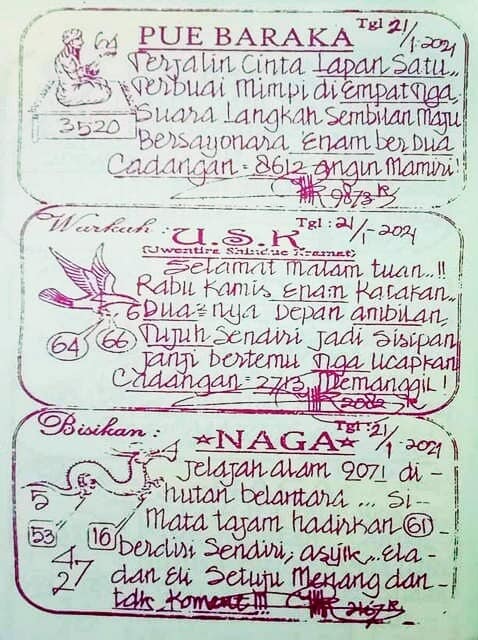 PUE BARAKA Tgl 21/1-2021
64
Terjalin Cinta Lapan Satu..
Terbuai Mimpi di Empat Tiga,
Suara Langkah Sembilan Maju
3520
Bersayonara Enam ber Dua
Cadangan = 8612 angin Mamiri!
9873
Warkah : U.S.K Tgl : 21/1-2021
Selamat malam tuan..!!
Rabu Kamis Enam Katakan..
6 Dua = nya Depan ambilan,
64 66 Tujuh Sendiri jadi Sisipan
janji bertemu Tiga ucapkan
Cadangan = 2713 Memanggil!
2082
Bisikan : NAGA Tgl : 21/1-2021
jelajah alam 9071 di -
5 hutan belantara ... Si --
Mata tajam hadirkan 61 -
53 16 berdiri Sendiri, asyik.. Ela -
47 dan Eli Setuju Menang dan -
27 tdk Koment !!!
2167